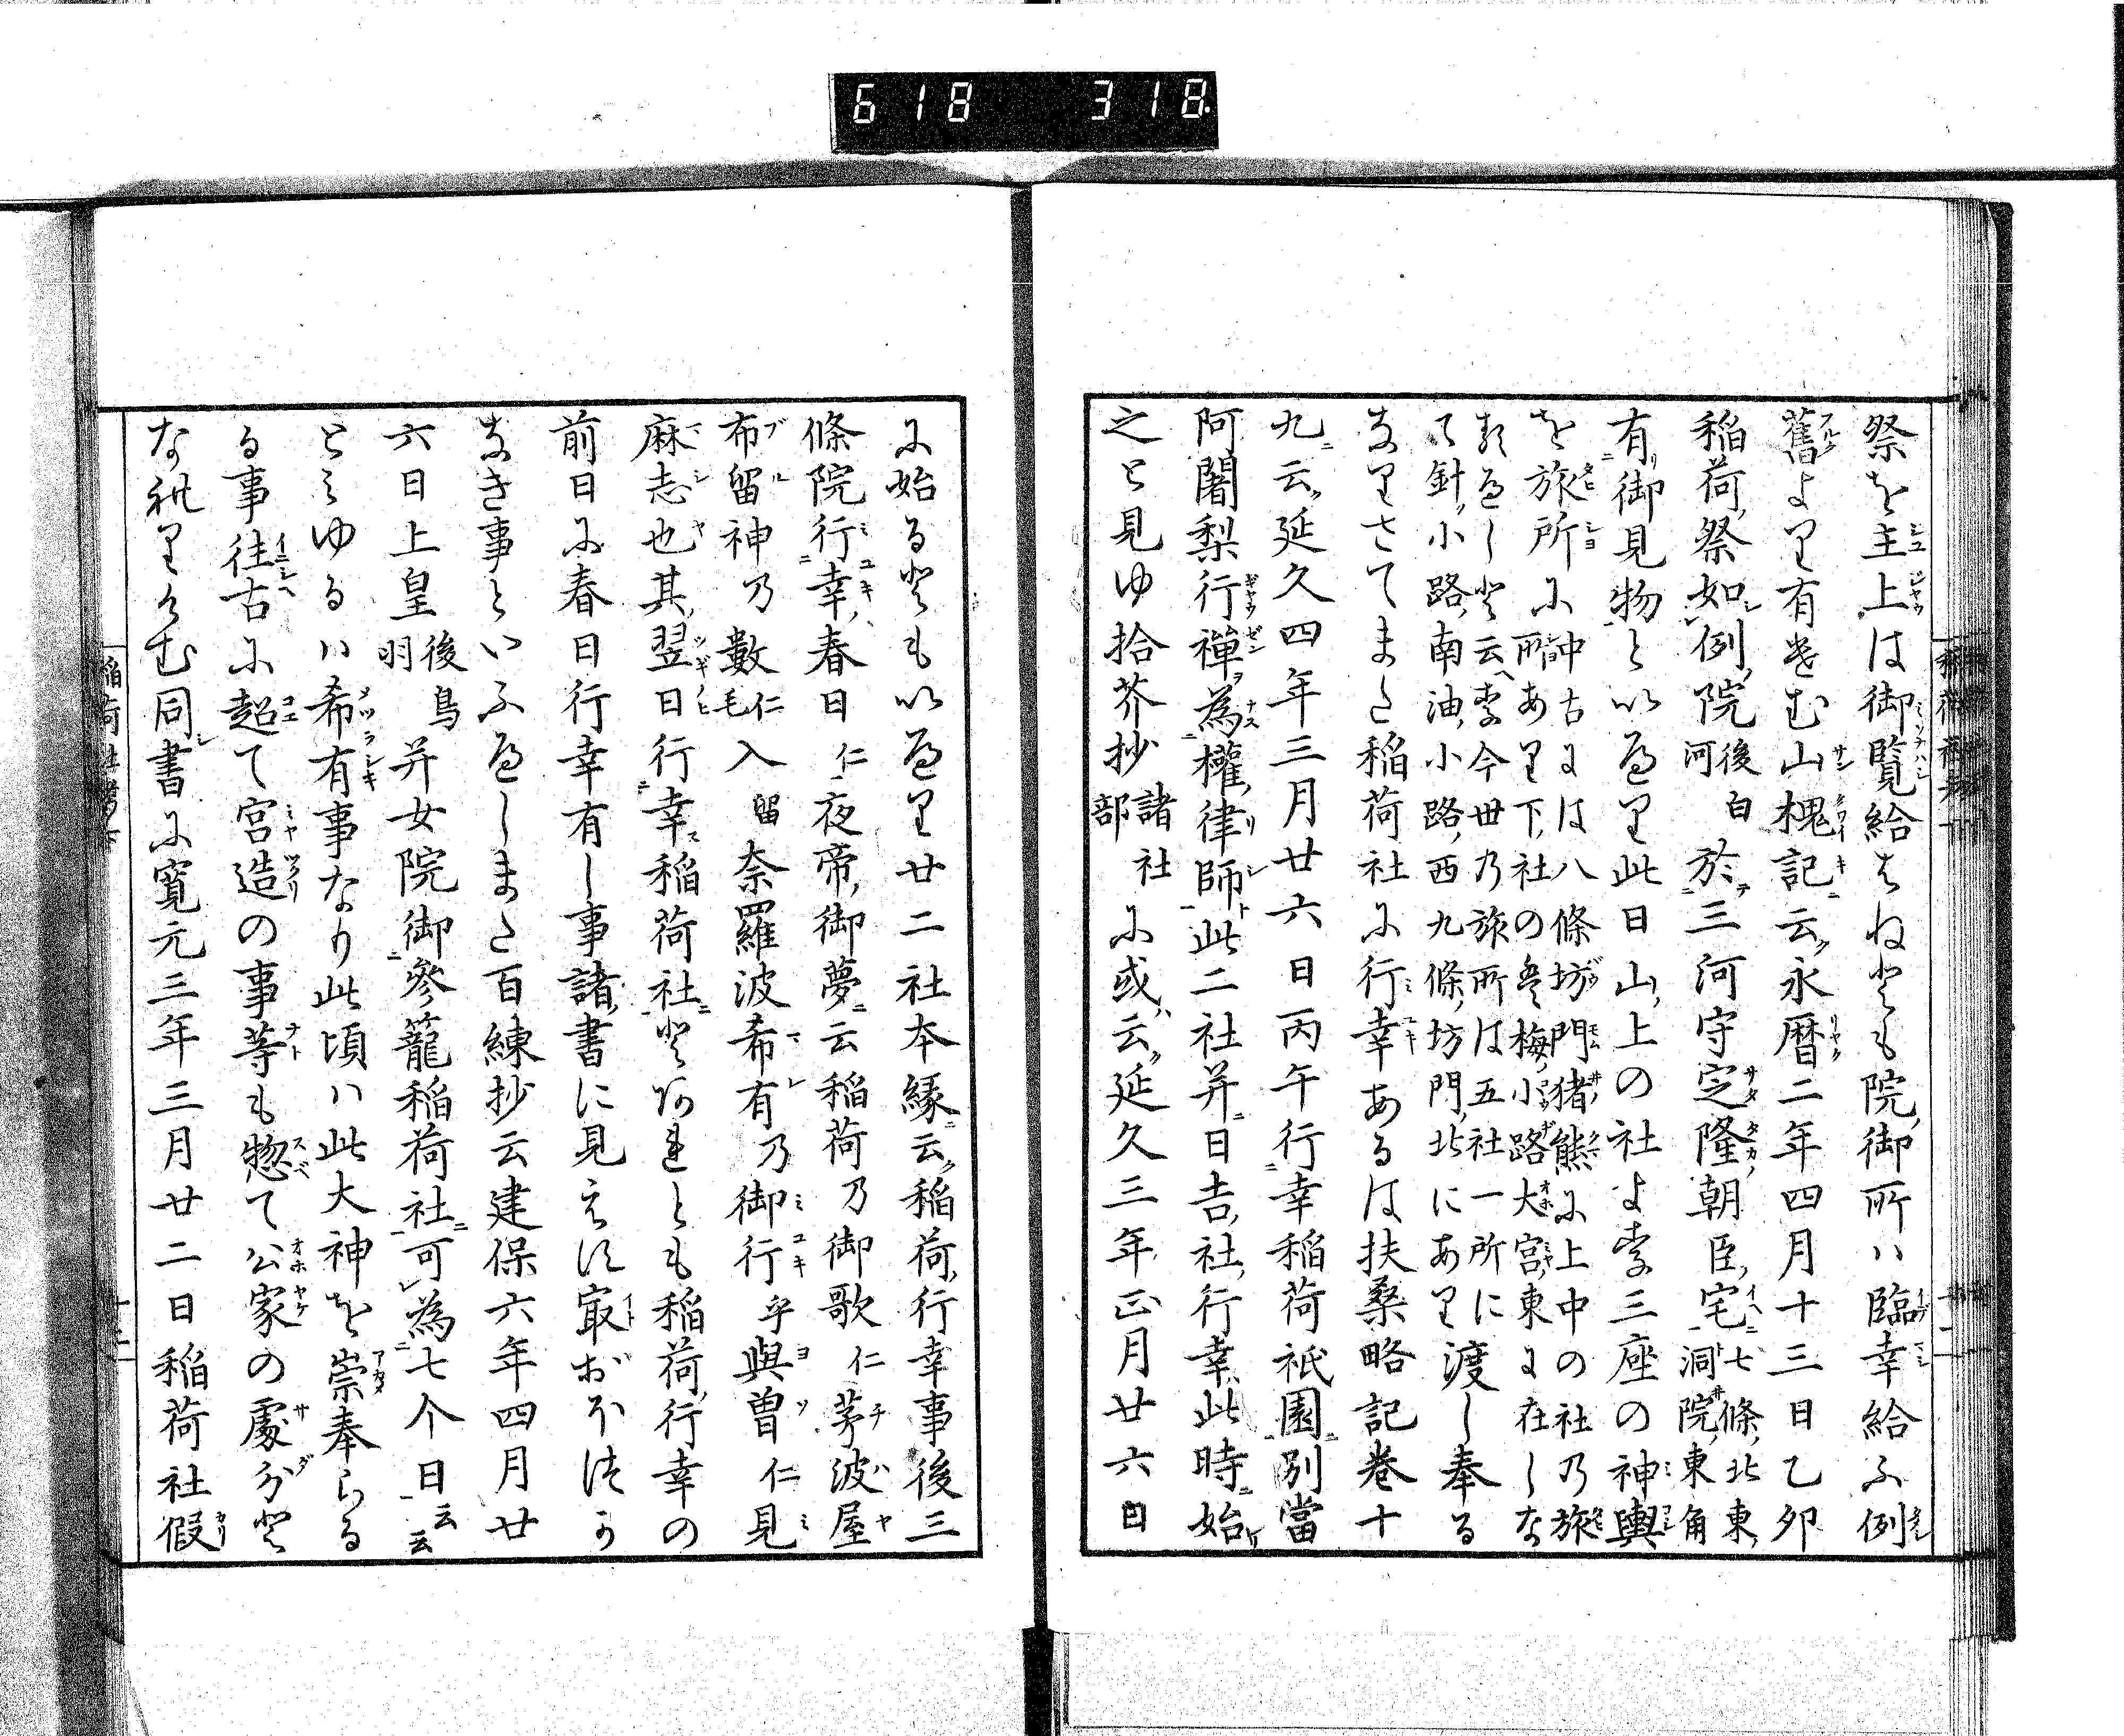 618 318.
祭を主上は御覧給はねども院ノ御所ハ臨幸給ふ例
舊より有けむ山槐記ニ云ク永暦二年四月十三日乙卯
稲荷ノ祭如例院後白河於三河守定隆ノ朝臣ノ宅七條ノ北東ノ洞院ノ東角
有御見物といへり此日山ノ上の社より三座の神輿
を旅所に中古には八條坊門猪熊に上中の社乃旅所あり下ノ社の梅小路大宮ノ東に在しな
るべしと云へり今世乃旅所は五社一所にて針ノ小路ノ南油ノ小路ノ西九條ノ坊門ノ北にあり渡し奉る
なりさてまた稲荷社に行幸あるは扶桑略記巻十
九ニ云ク延久四年三月廿六日丙午行幸稲荷祇園別當
阿闍梨行禅ヲ為權ノ律師此二社并日吉ノ社ノ行幸此時始
之と見ゆ拾芥抄諸社部に或ハ云ク延久三年正月廿六日
に始るともいへり廿二社本縁ニ云ク稲荷ノ行幸事後三
條院行幸春日仁夜帝ノ御夢ニ云稲荷乃御歌仁茅波屋
布留神乃數仁毛入留奈羅波希有乃御行乎與曽仁見
麻志也其ノ翌日行幸稲荷社とあれとも稲荷ノ行幸の
前日に春日行幸有し事諸ノ書に見えず㝡おほつか
なき事といふべしまた百練抄云建保六年四月廿
六日上皇後鳥羽并女院御參籠稲荷社可為七个日云云
とみゆるハ希有事なり此頃ハ此大神を崇奉らる
る事往古に超て宮造の事等も惣て公家の處分と
なれりけむ同書に寛元三年三月廿二日稲荷社假
稲荷社考下
十二